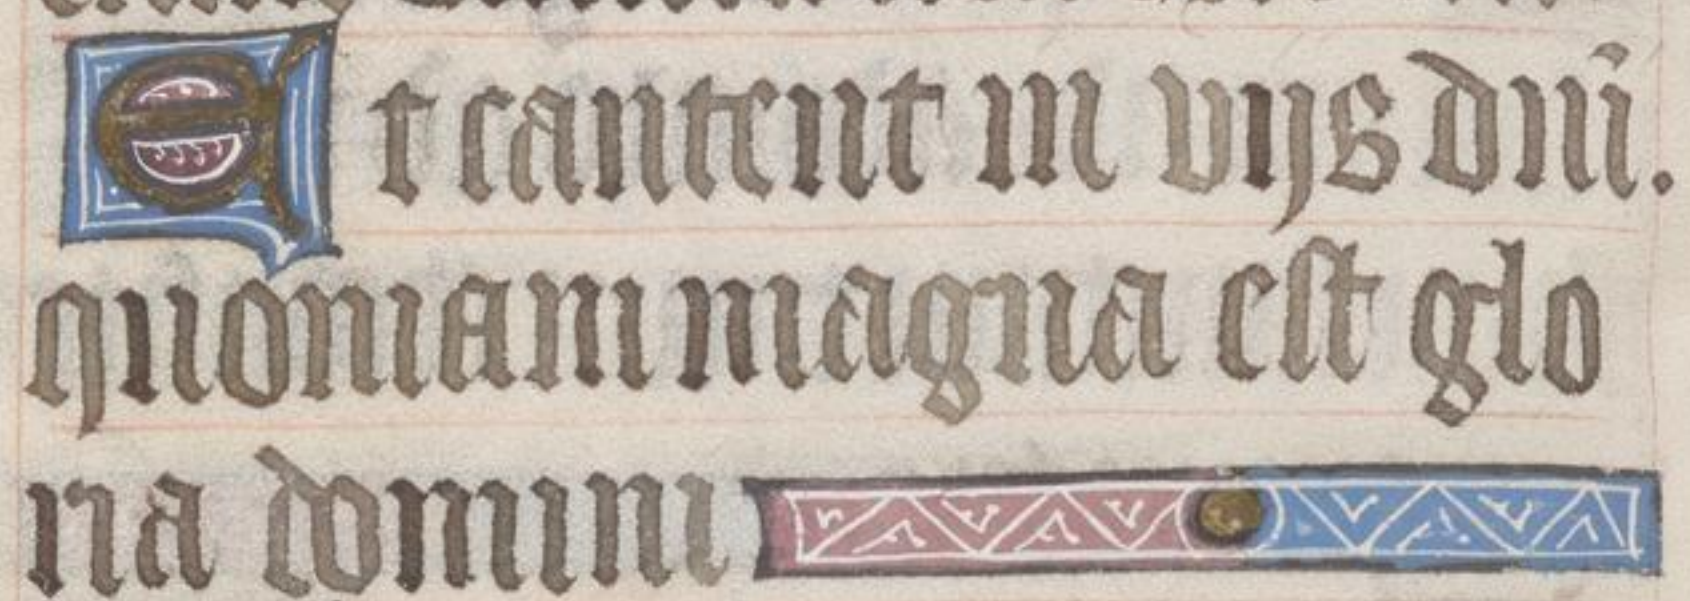 Et cantent in vijs dñi.
quoniam magna est glo
ria domini